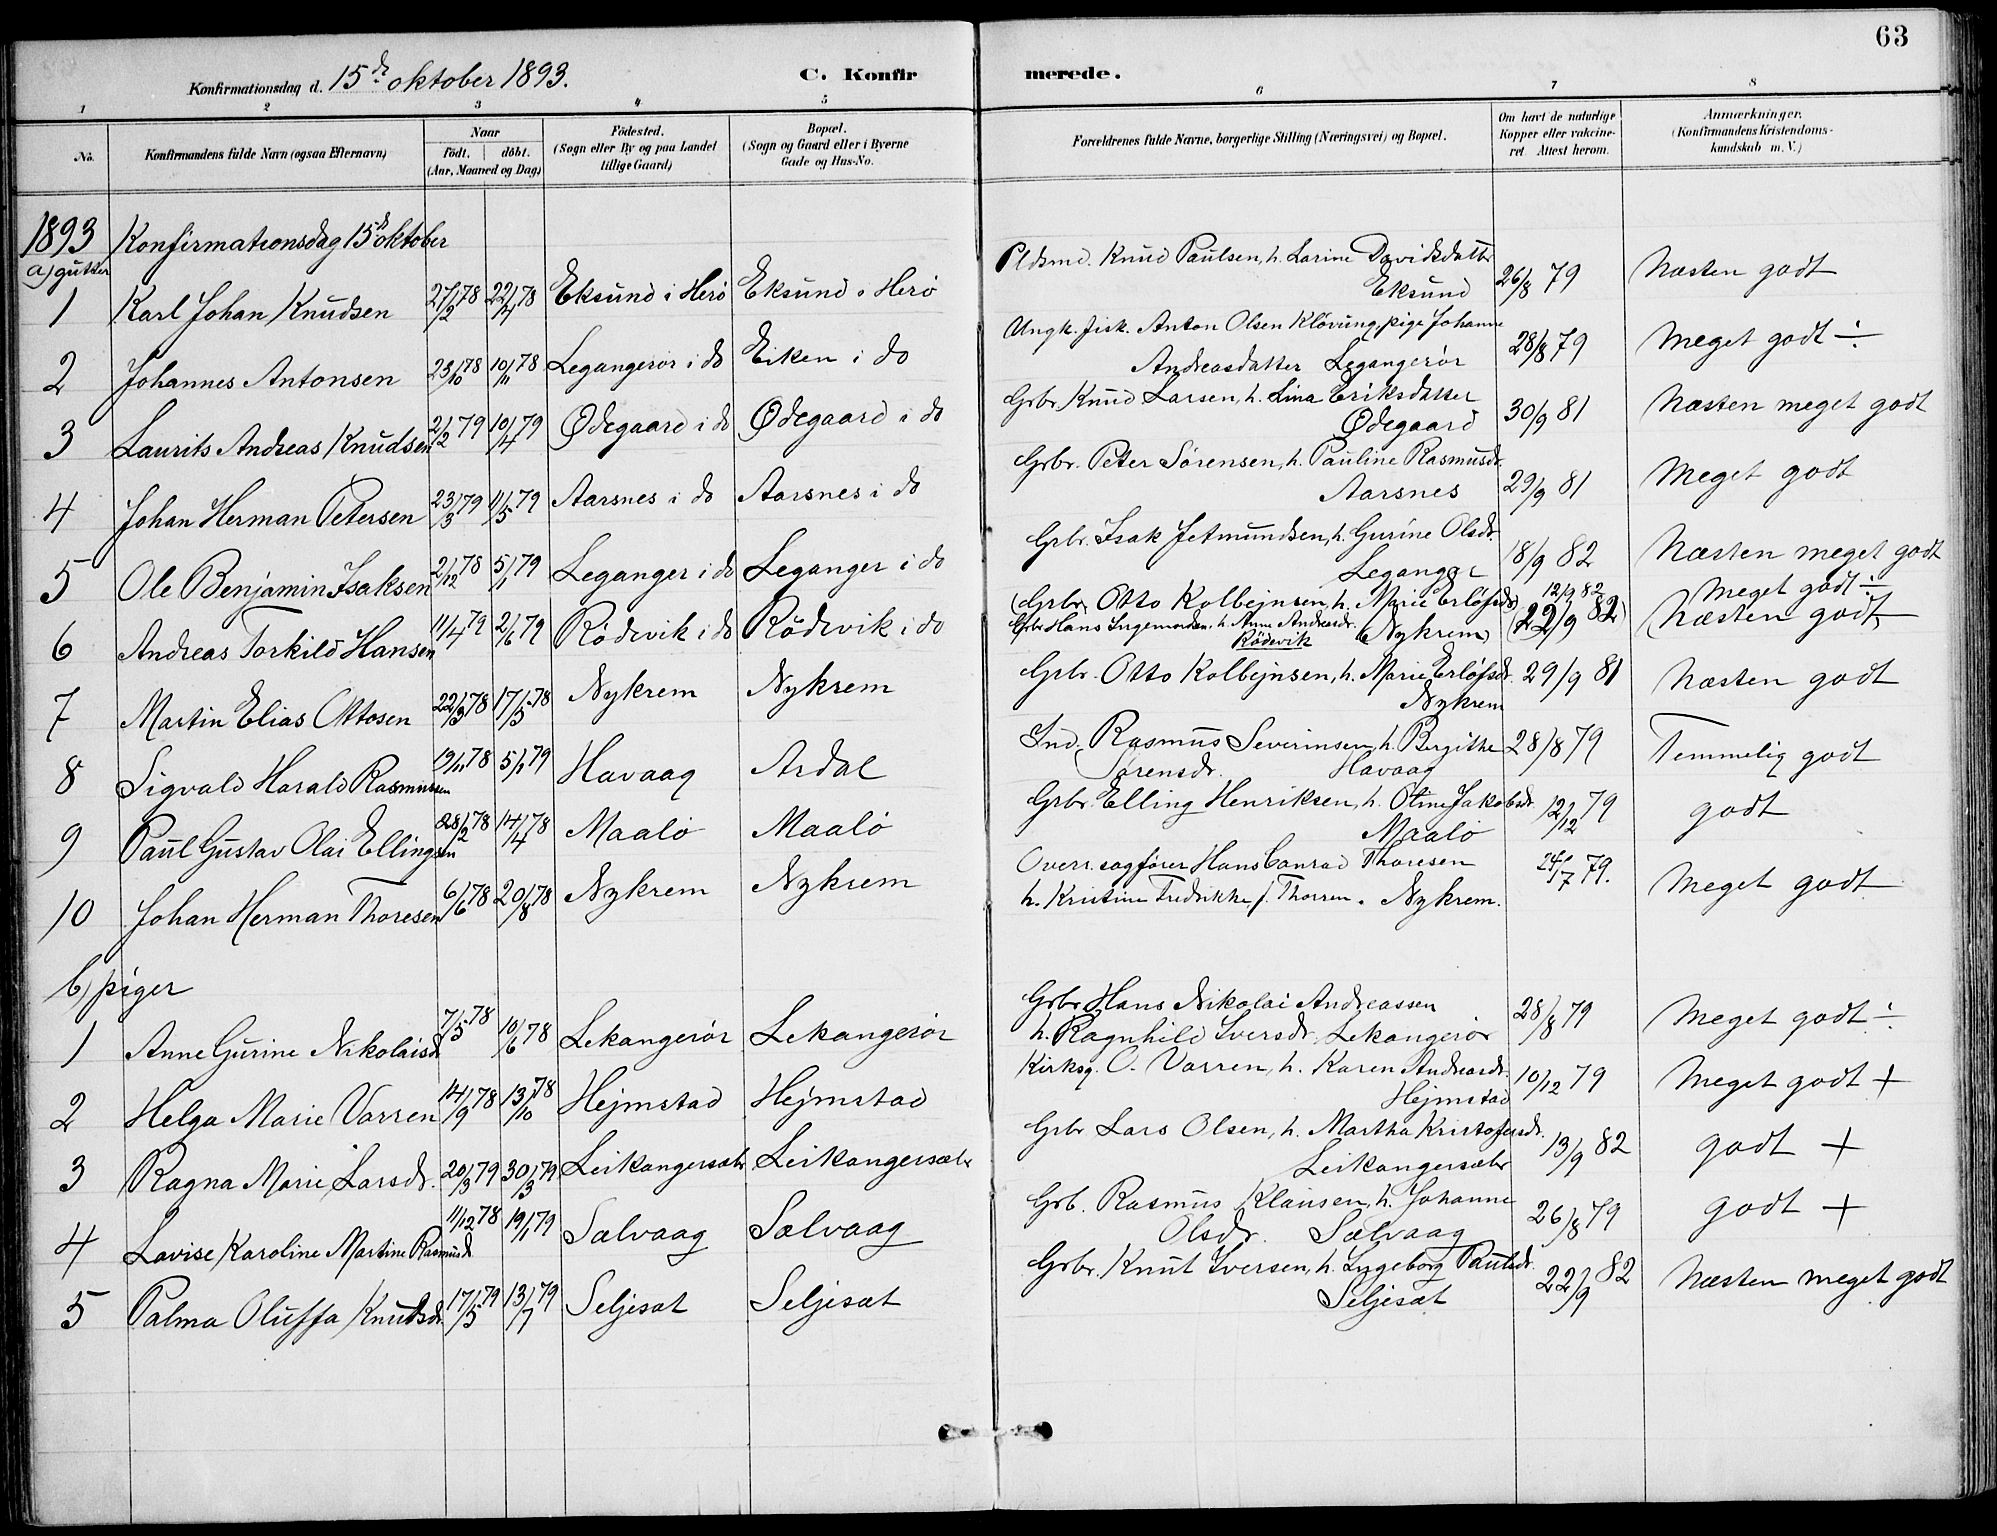 63
Konfirmationsdag d. 15de oktober 1893. C. Konfirmerede.
1 2 3 4 5 6 7 8
No. Konfirmandens fulde Navn (ogsaa Efternavn) Naar födt. döbt. (Aar, Maaned og Dag) Födested. (Sogn eller By og paa Landet tillige Gaard) Bopæl. (Sogn og Gaard eller i Byerne Gade og Hus-No. Forældrenes fulde Navne, borgerlige Stilling (Næringsvei) og Bopæl. Om havt de naturlige Kopper eller vakcineret Attest herom. Anmærkninger. (Konfirmandens Kristendomskundskab m. V.)
1893 Konfirmationsdag 15d oktober
a) gutter
1 Karl Johan Knudsen 27/2 78 22/4 78 Eksund i Herö Eksund i Herö Pldsmd. Knud Paulsen, h. Larine Davidsdatter Eksund 26/8 79 Næsten godt
2 Johannes Antonsen 23/10 78 10/11 78 Legangerör i do Eiken i do Ungk. fisk. Anton Olsen Klövung, pige Johanne Andreasdatter Legangerör 28/8 79 Meget godt ÷
3 Laurits Andreas Knudsen 2/2 79 10/4 79 Ødegaard i do Ødegaard i do Grbr. Knud Larsen, h. Lina Eriksdatter Ødegaard 30/9 81 Næsten meget godt
4 Johan Herman Petersen 23/3 79 11/5 79 Aarsnes i do Aarsnes i do Grbr. Peter Sörensen, h. Pauline Rasmusdr. Aarsnes 29/9 81 Meget godt
5 Ole Benjamin Isaksen 2/12 78 5/1 79 Leganger i do Leganger i do Grbr. Isak Jetmundsen, h. Gurine Olsdr. Leganger 18/9 82 Næsten meget godt
6 Andreas Torkild Hansen 11/4 79 2/6 79 Rödsvik i do Rödsvik i do (Grbr. Otto Kolbejnsen, h. Marie Erlöfsdr. Nykrem) Grbr. Hans h. Anne Andrasdr. Rödsvik 12/9 82 (22/9 82) Meget godt ÷ Næsten godt
7 Martin Elias Ottosen 22/3 78 17/5 78 Nykrem Nykrem Grbr. Otto Kolbejnsen, h. Marie Erlöfsdr. Nykrem 29/9 81 Næsten godt
8 Sigvald Harald Rasmussen 19/11 78 5/1 79 Havaag Ardal Ind. Rasmus Severinsen, h. Bergithe Sörensdr. Havaag 28/8 79 Temmelig godt
9 Paul Gustav Olai Ellingsen 28/2 78 14/4 78 Maalö Maalö Grbr. Elling Henriksen, h. Oline Jakobsdr. Maalö 12/12 79 godt
10 Johan Herman Thoresen 6/6 78 20/8 78 Nykrem Nykrem Overr.sagförer Hans Conrad Thoresen h. Kristine Fredrikke f. Thorren. Nykrem. 24/7 79. Meget godt
b, piger
1 Anne Gurine Nikolaisdr. 7/5 78 10/6 78 Lekangerör Lekangerör Grbr. Hans Nikolai Andreassen h. Ragnhild Iversdr. Lekangerör 28/8 79 Meget godt ÷
2 Helga Marie Varren 14/9 78 13/10 78 Hejmstad Hejmstad Kirksg. O. Varren, h. Karen Andreasdr. Hejmstad 10/12 79 Meget godt +
3 Ragna Marie Larsdr. 20/3 79 30/3 79 Leikangersætr Leikangersætr Grbr Lars Olsen, h. Martha Kristofersdr. Leikangersætr 13/9 82 godt +
4 Lovise Karoline Martine Rasmusd 11/12 78 19/1 79 Sælvaag Sælvaag Grb. Rasmus Klausen, h. Johanne Olsdr. Sælvaag 26/8 79 godt +
5 Palma Oluffa Knudsdr. 17/5 79 13/7 79 Seljesæt Seljesæt Grbr. Knut Iversen, h. Ingeborg Paulsdr. Seljesæt 22/9 82 Næsten meget godt